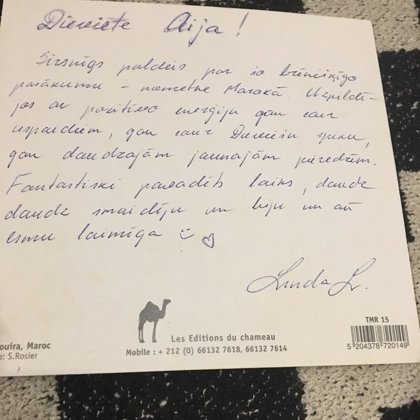 Dieviete Aija!
Sirsnīgs paldies par šo brīnišķīgo
pasākumu – nometne Marokā. Uzpildī-
jos ar pozitīvo enerģiju gan caur
caur Dieviešu spēku,
gan daudzajām jaunajām pieredzēm.
Fantastiski pavadīts laiks, daudz
daudz smaidīju un biju un arī
esmu laimīga
Linda L.
TMR 15
ouira, Maroc
o: S.Rosier
Les Editions du chameau
Mobile : + 212 (0) 66132 7618, 66132 7614
5 204378 720149